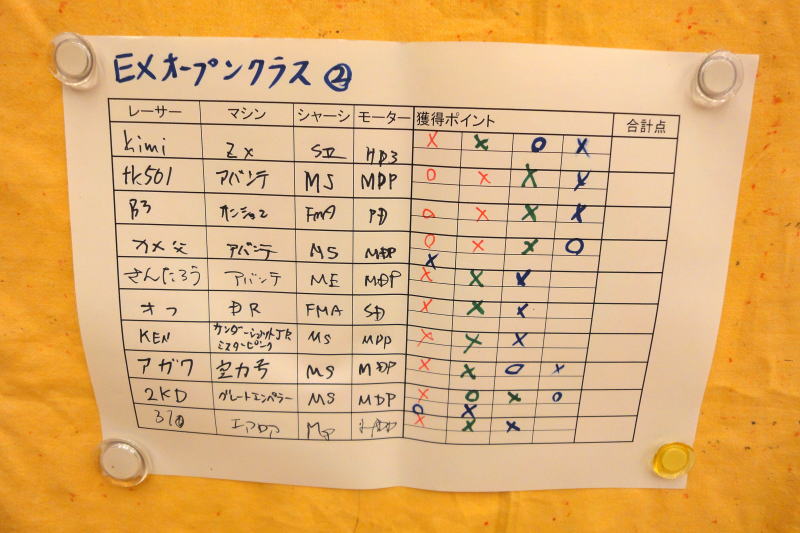 EXオープンクラス②
レーサー マシン シャーシ モーター 獲得ポイント 合計点
kimi ZX SⅡ HD3 × × ○ ×
tk501 アバンテ MS MDP ○ × × ×
B3 FMA PD ○ × × ×
カメ父 アバンテ MS MDP ○ × × ○
×
さんたろう アバンテ ME MDP × × ×
オっ DR FMA SD × × ×
KEN サンダーショットJr. ミスターピンク MS MDP × × ×
アガワ 空力号 MS MDP × × ○ ×
2KD グレートエンペラー MS MDP × ○ × ○
○ ×
310 エアロア × × ×